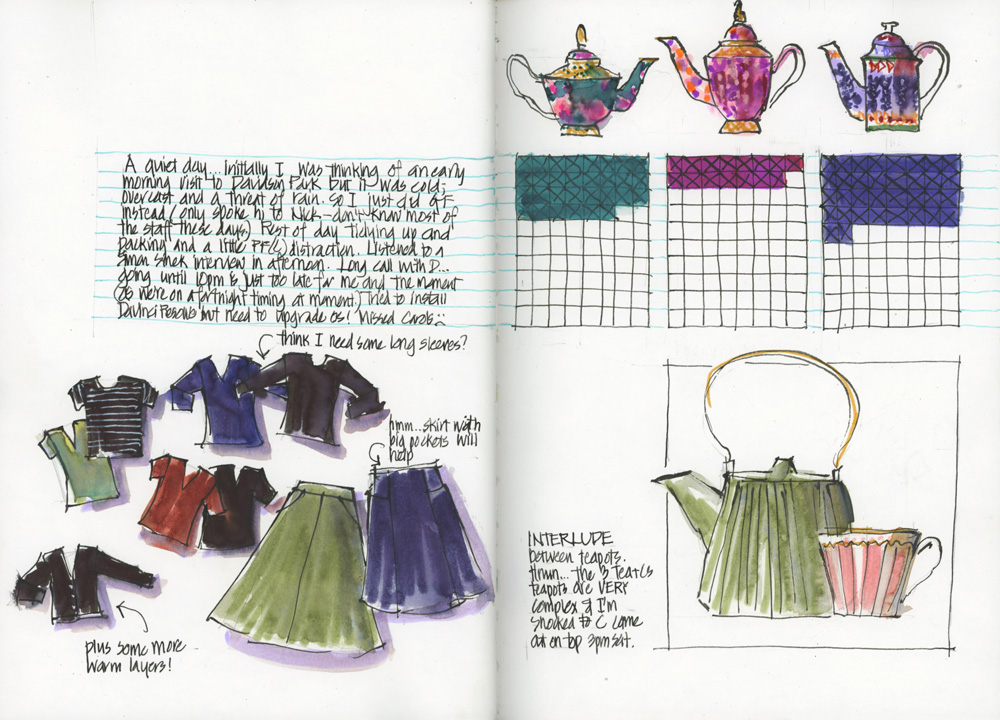 A quiet day... initially I was thinking of an early
morning visit to Davidson Park but it was cold,
overcast and a threat of rain. So I just did GF
instead (only spoke hi to Nick - don't know most of
the staff these days.) Rest of day tidying up and
packing and a little PF(C) distraction. Listened to a
Simon Sinek interview in afternoon. Long call with D...
going until 10pm is just too late for me and the moment
(as we're on a fortnight timing at moment.) Tried to install
DaVinci Resolve but need to upgrade OS! Missed Carols :(
think I need some long sleeves?
hmm... skirt with
big pockets will
help
plus some more
warm layers!
INTERLUDE
between teapots.
Hmm... the 3
teapots are VERY
complex & I'm
shocked to C come
out on top 3pm Sat.